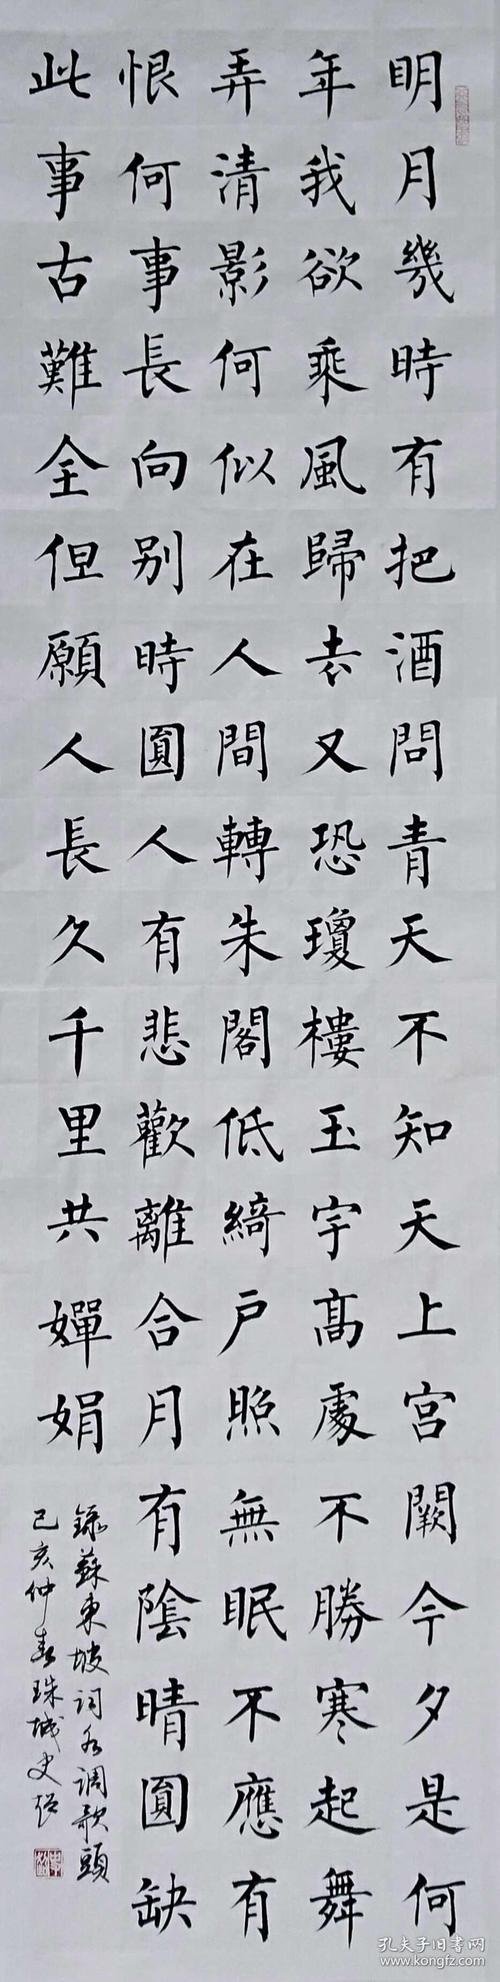 明月幾時有把酒問青天不知天上宮闕今夕是何
年我欲乘風歸去又恐瓊樓玉宇高處不勝寒起舞
弄清影何似在人間轉朱閣低綺戶照無眠不應有
恨何事長向別時圓人有悲歡離合月有陰晴圓缺
此事古難全但願人長久千里共嬋娟
錄蘇東坡词水调歌頭
己亥仲春珠城史
孔夫子旧书网
www.kongfz.com